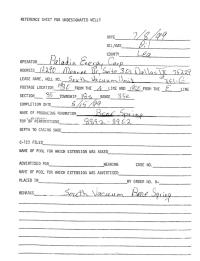 REFERENCE SHEET FOR UNDESIGNATED WELLS
DATE 7/8/99
OIL/GAS Oil
COUNTY Lea
OPERATOR Paladin Energy Corp
ADDRESS 10290 Monroe Dr, Suite 301 Dallas TX 75229
LEASE NAME, WELL NO. South Vacuum Unit
FOOTAGE LOCATION FROM THE LINE AND FROM THE E LINE
SECTION 35 TOWNSHIP 18S RANGE 35E
COMPLETION DATE
NAME OF PRODUCING FORMATION Bone Spring
TOP OF PERFORATIONS
DEPTH TO CASING SHOE
C-123 FILED
NAME OF POOL FOR WHICH EXTENSION WAS ASKED
ADVERTISED FOR HEARING CASE NO.
NAME OF POOL FOR WHICH EXTENSION WAS ADVERTISED
PLACED IN BY ORDER NO. R-
REMARKS South Vacuum Bone Spring